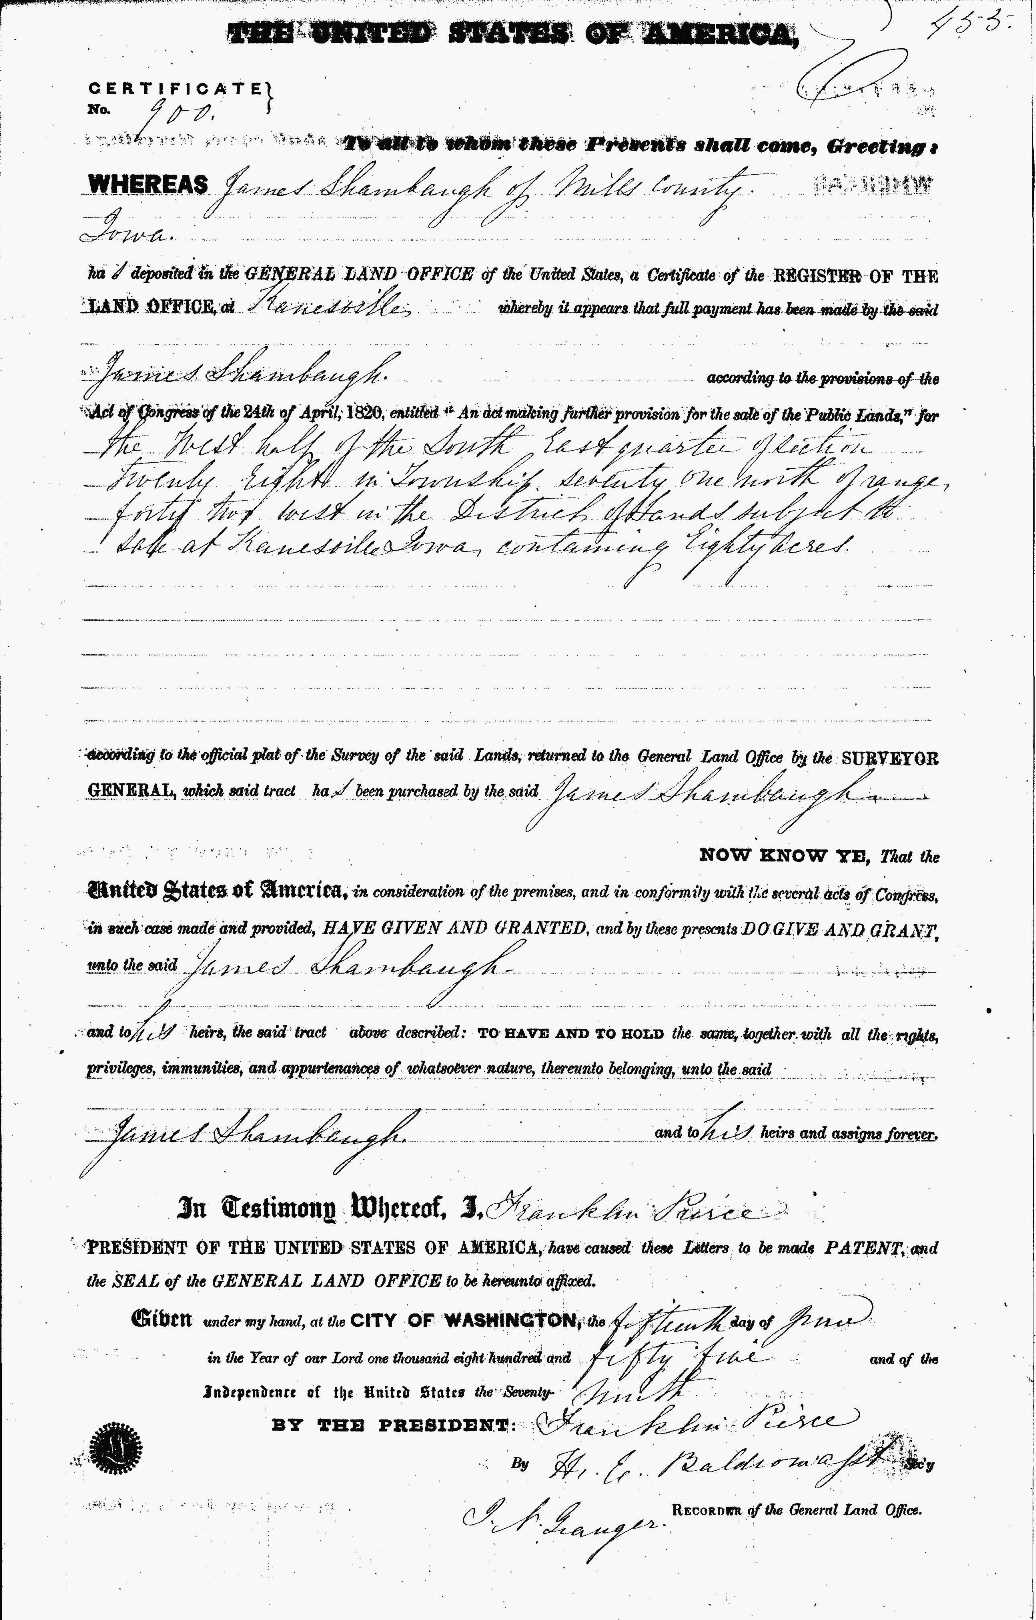 455.
THE UNITED STATES OF AMERICA,
CERTIFICATE
No. 900.
To all to whom these Presents shall come, Greeting:
WHEREAS James Shambaugh of Mills County
Iowa.
ha s deposited in the GENERAL LAND OFFICE of the United States, a Certificate of the REGISTER OF THE
LAND OFFICE, at Kanesville, whereby it appears that full payment has been made by the said
James Shambaugh. according to the provisions of the
Act of Congress of the 24th of April, 1820, entitled "An act making further provision for the sale of the Public Lands," for
the West half of the South East quarter of section
Twenty Eight in Township seventy one north of range
forty two west in the District of Lands subject to
sale at Kanesville Iowa, containing Eighty Acres.
according to the official plat of the Survey of the said Lands, returned to the General Land Office by the SURVEYOR
GENERAL, which said tract ha s been purchased by the said James Shambaugh
NOW KNOW YE, That the
United States of America, in consideration of the premises, and in conformity with the several acts of Congress,
in such case made and provided, HAVE GIVEN AND GRANTED, and by these presents DO GIVE AND GRANT,
unto the said James Shambaugh
and to his heirs, the said tract above described: TO HAVE AND TO HOLD the same, together with all the rights,
privileges, immunities, and appurtenances of whatsoever nature, thereunto belonging, unto the said
James Shambaugh. and to his heirs and assigns forever.
In Testimony Whereof, I, Franklin Pierce
PRESIDENT OF THE UNITED STATES OF AMERICA, have caused these Letters to be made PATENT, and
the SEAL of the GENERAL LAND OFFICE to be hereunto affixed.
Given under my hand, at the CITY OF WASHINGTON, the fifteenth day of June
in the Year of our Lord one thousand eight hundred and fifty five and of the
Independence of the United States the Seventy- ninth
BY THE PRESIDENT: Franklin Pierce
By H. E. Baldwin Asst Sec'y
J. N. Granger. RECORDER of the General Land Office.